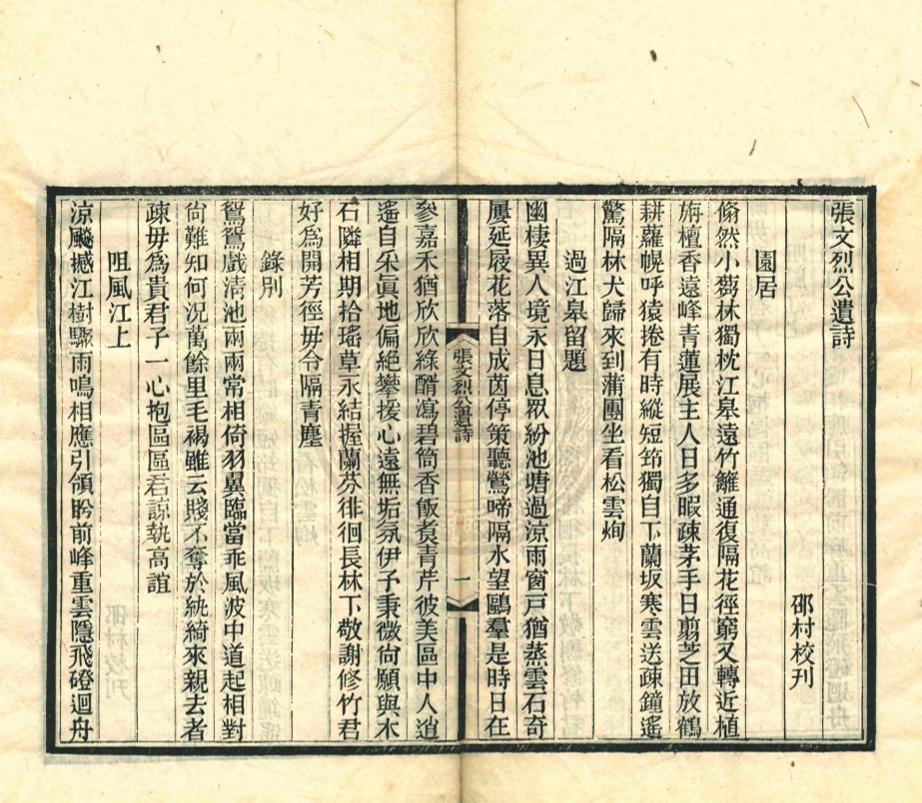 張文烈公遺詩
邵村校刊
園居
翛然小蒭林獨枕江臯遠竹籬通復隔花徑窮又轉近植
旃檀香遠峰青蓮展主人日多暇疎茅手日翦芝田放鶴
耕蘿幌呼猿捲有時縱短笻獨自下蘭坂寒雲送疎鐘遙
驚隔林犬歸來到蒲團坐看松雲絢
過江臯留題
幽棲異人境永日息眾紛池塘過涼雨窗戶猶蒸雲石奇
屢延屐花落自成茵停策聽鶯啼隔水望鷗羣是時日在
參嘉禾猶欣欣綠醑瀉碧筒香飯煑青芹彼美區中人逍
遙自采眞地偏絕攀援心遠無垢氛伊予秉微尙願與木
石隣相期拾瑤草永結握蘭芬徘徊長林下敬謝修竹君
好爲開芳徑毋令隔青塵
錄別
鴛鴦戲清池兩兩常相倚羽翼臨當乖風波中道起相對
尙難知何況萬餘里毛褐雖云賤不奪於紈綺來親去者
疎毋爲貴君子一心抱區區君諒執高誼
阻風江上
涼飈撼江樹驟雨鳴相應引領盻前峰重雲隱飛磴迴舟
張文烈公遺詩
一